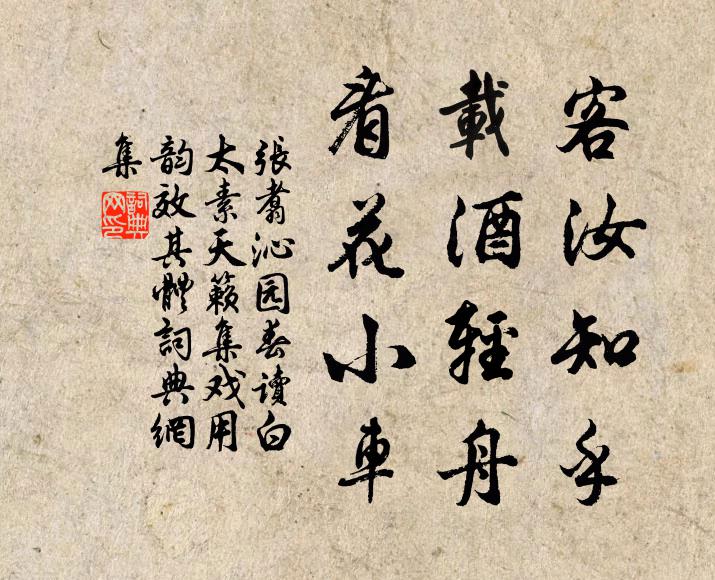 客汝知乎
載酒輕舟
看花小車
張翥沁园春讀白
太素天籟集戏用
韵效其體詞典網
集
詞典網印